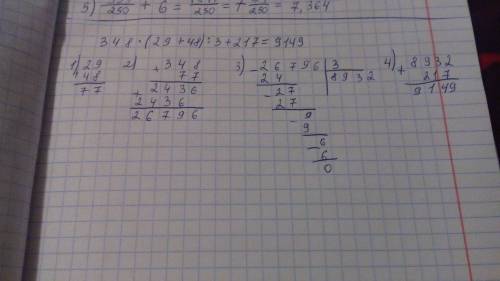 5) 250 + 6 = 250 = + 250 = 7,364
348 · (29 + 48) : 3 + 217 = 9149
1) 29 2) + 348 3) - 26796 | 3 4) + 8932
48 77 24 8932 217
77 + 2436 - 27 9149
2436 27
26796 - 9
9
- 6
6
0